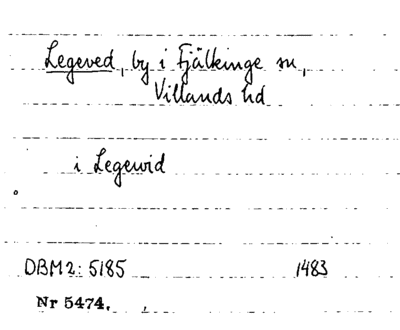 Legeved, by i Fjälkinge sn,
Villands hd
i Legewid
DBM2: 5185 1483
Nr 5474.